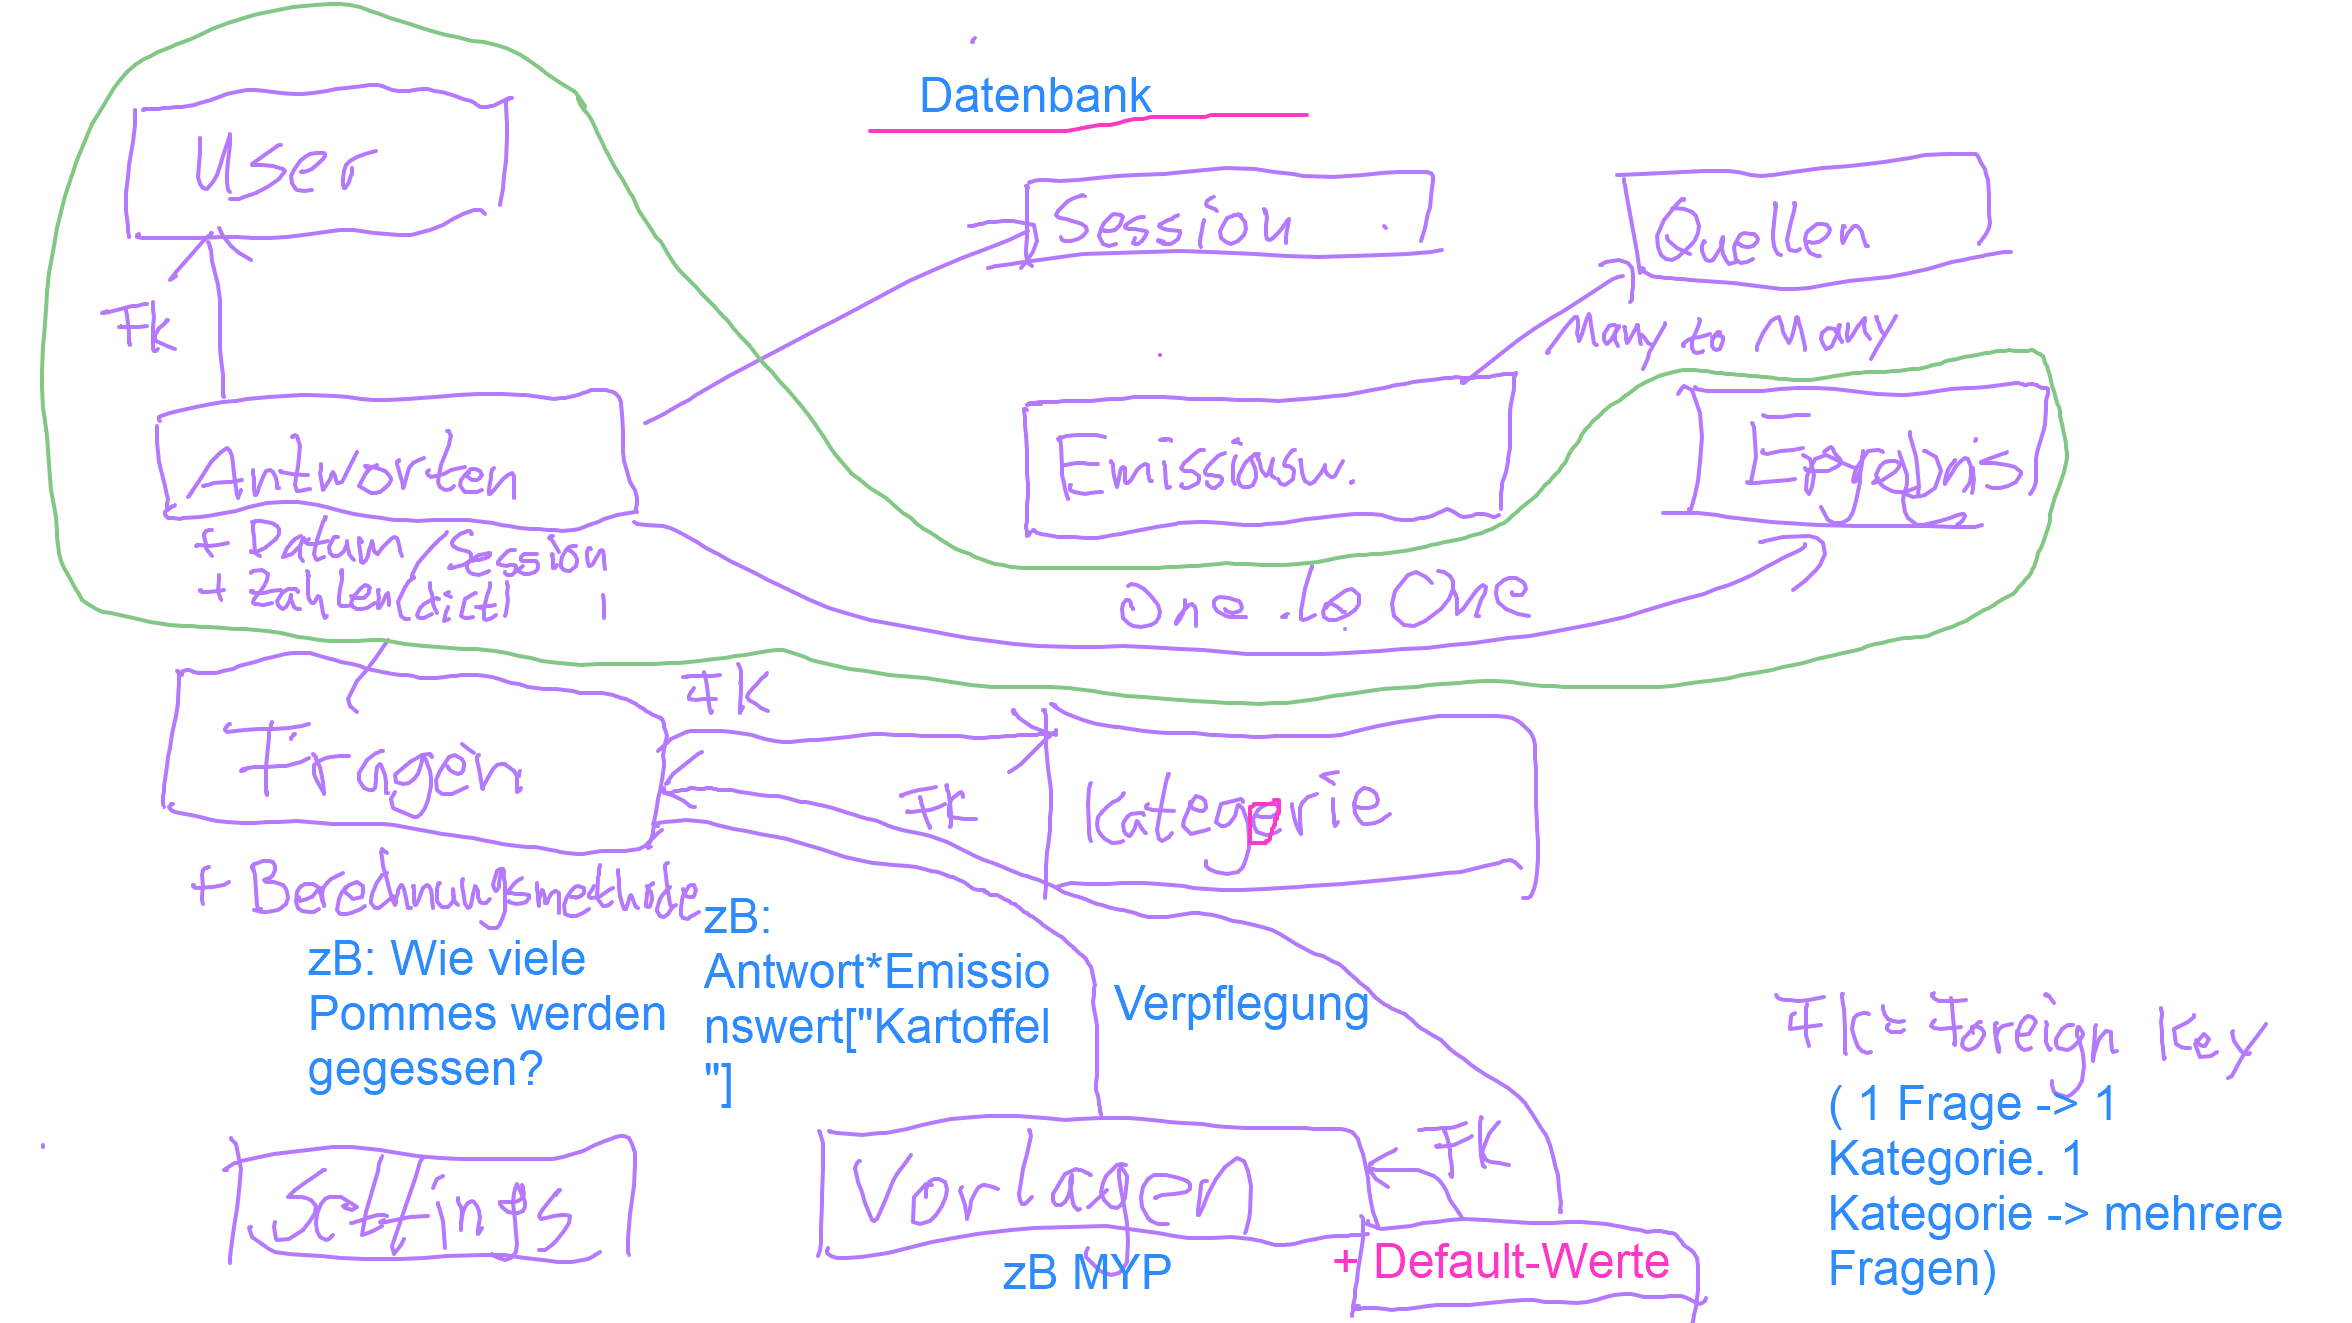 Datenbank
User
Session
Quellen
FK
Many to Many
Antworten
Emissionsw.
Ergebnis
+ Datum/Session
+ Zahlen(dict)
One to One
FK
Fragen
FK
Kategorie
+ Berechnungsmethode
zB: Wie viele
Pommes werden
gegessen?
zB:
Antwort*Emissio
nswert["Kartoffel
"]
Verpflegung
FK = Foreign Key
( 1 Frage -> 1
Kategorie. 1
Kategorie -> mehrere
Fragen)
Settings
Vorlagen
FK
zB MYP
+ Default-Werte